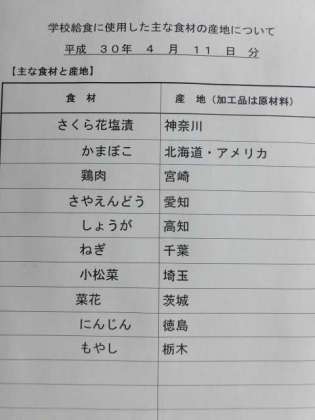 学校給食に使用した主な食材の産地について
平成 30年 4 月 11 日 分
【主な食材と産地】
食 材 産 地（加工品は原材料）
さくら花塩漬 神奈川
かまぼこ 北海道・アメリカ
鶏肉 宮崎
さやえんどう 愛知
しょうが 高知
ねぎ 千葉
小松菜 埼玉
菜花 茨城
にんじん 徳島
もやし 栃木